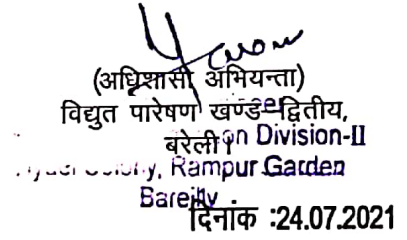 (अधिशासी अभियन्ता)
विद्युत पारेषण खण्ड–द्वितीय,
बरेली।
on Division-II
Rampur Garden
Bareilly
दिनांक :24.07.2021